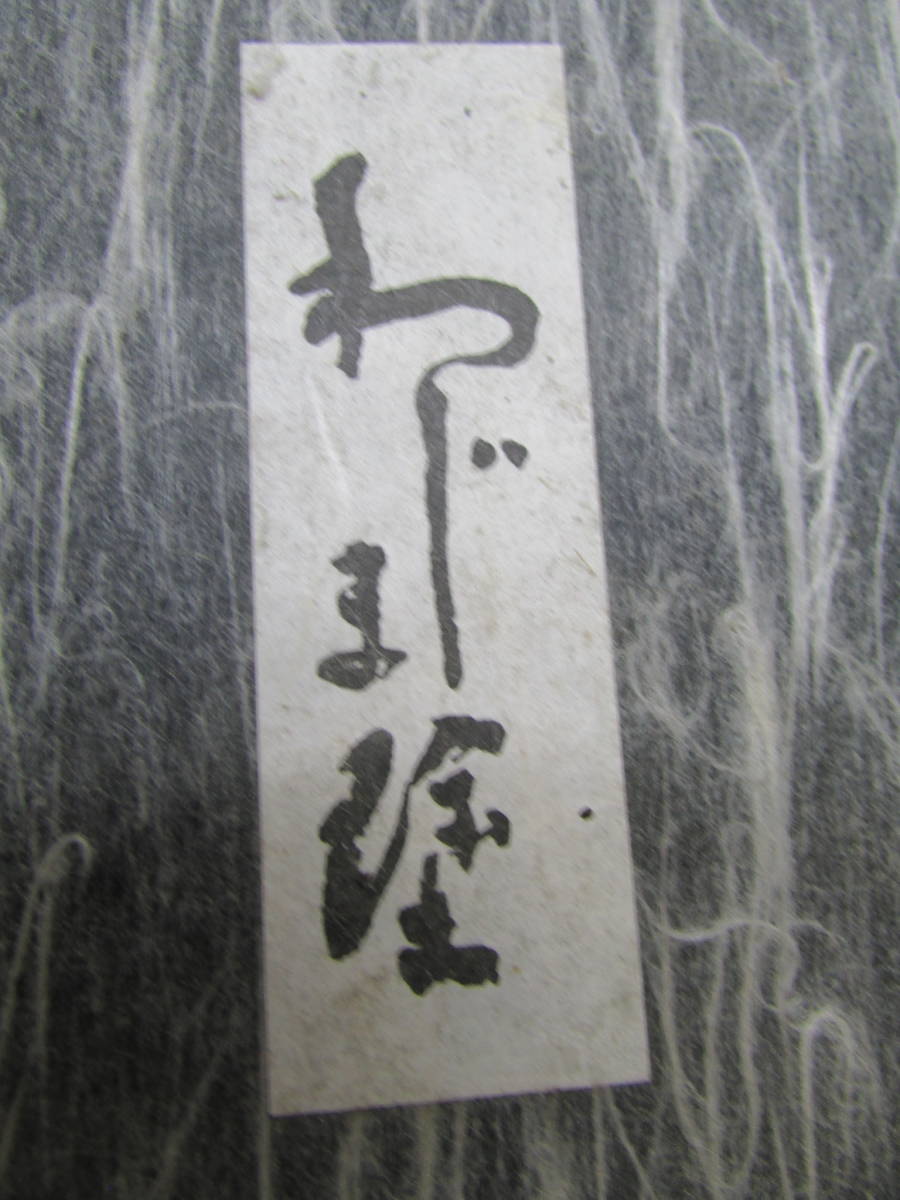 わじま塗